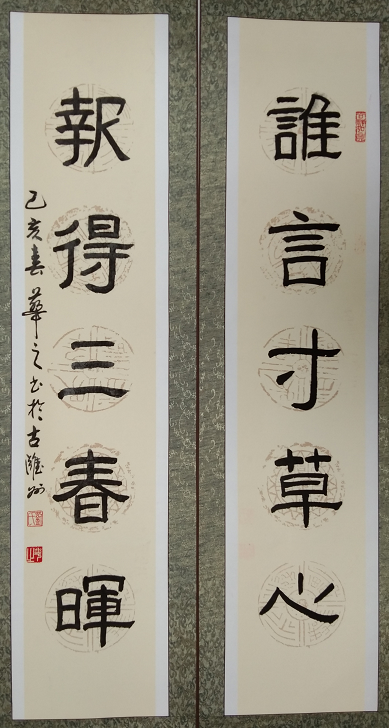 誰言寸草心
報得三春暉
己亥春華之書於古濰州